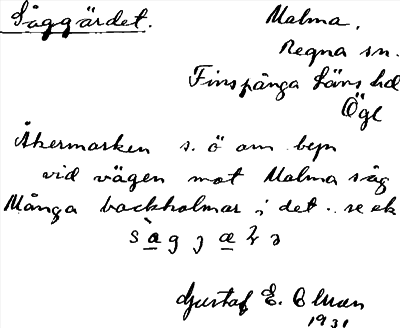 Såggärdet.
Malma.
Regna sn.
Finspånga läns hd
Ögl
Åkermarken s. ö om byn
vid vägen mot Malma såg
Många backholmar i det. se ek
Gustaf E.
1931